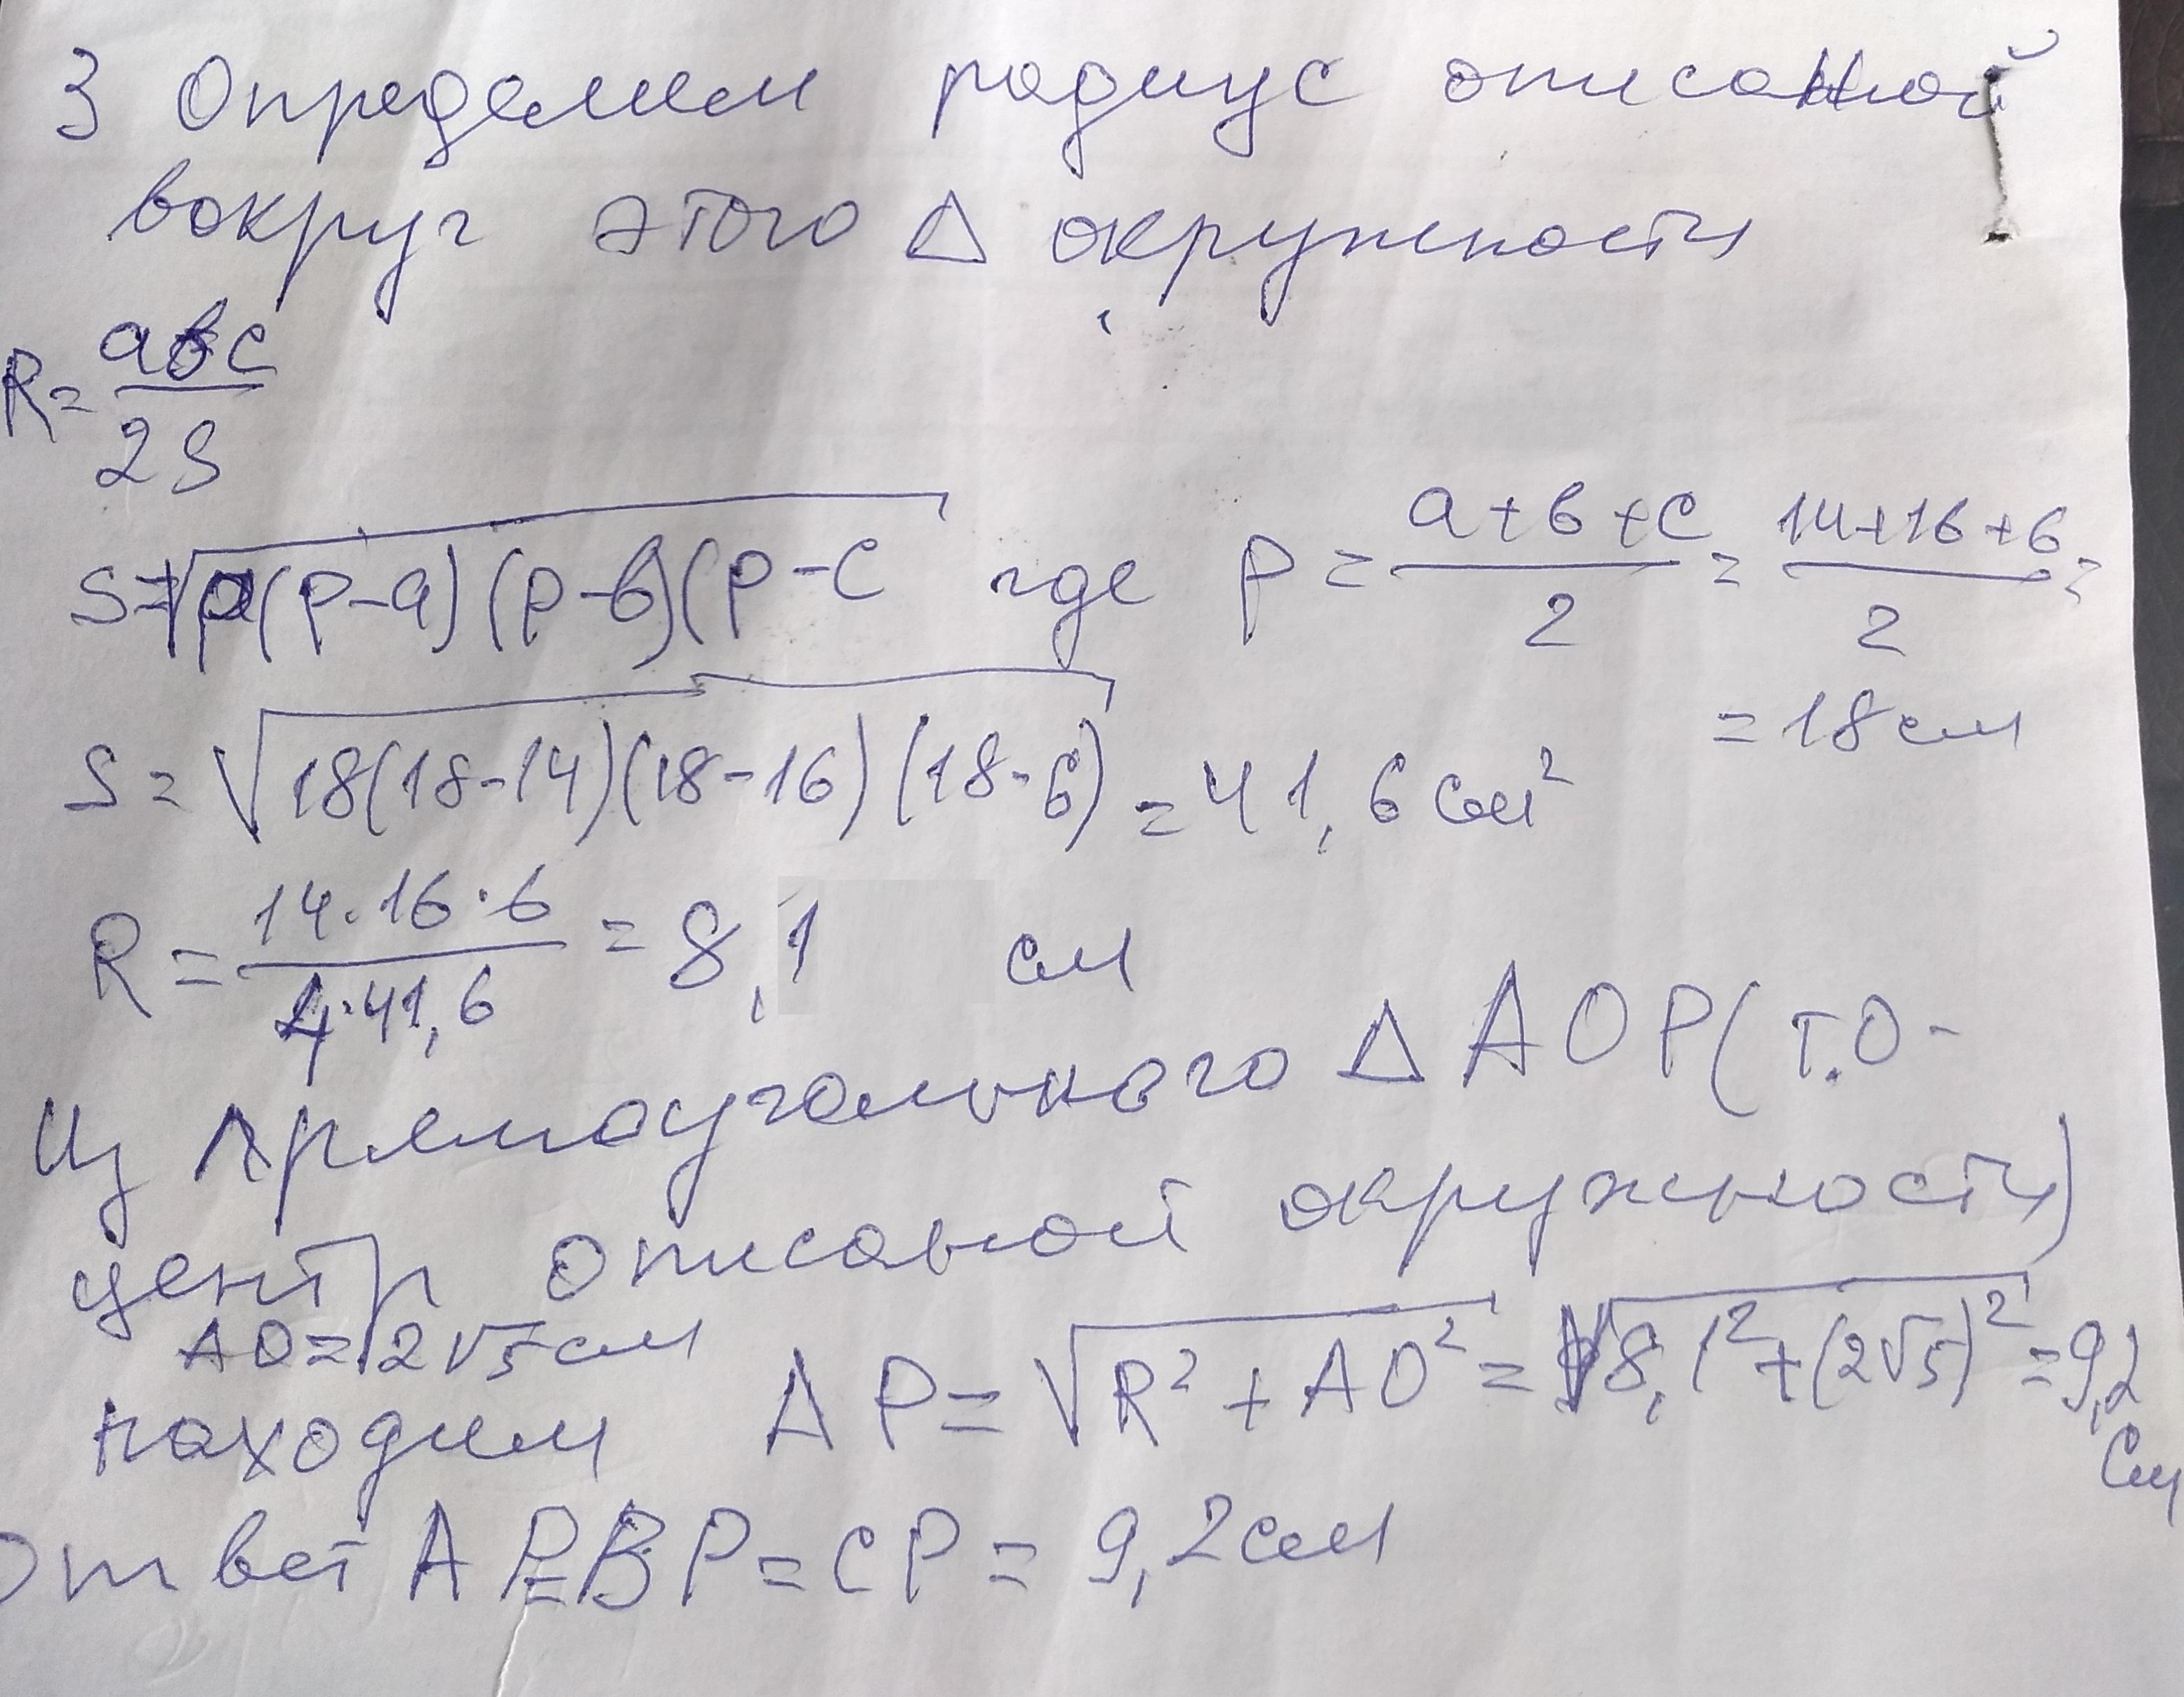 3 Определим радиус описаной
вокруг этого Δ окружности
R = abc / 2S
S = √p(p-a)(p-b)(p-c где p = a+b+c / 2 = 14+16+6 / 2 =
= 18 см
S = √18(18-14)(18-16)(18-6) = 41,6 см²
R = 14·16·6 / 4·41,6 = 8,1 см
Из прямоугольного Δ AOP (т.О-
центр описаной окружности)
AO = 2√5 см
находим AP = √R² + AO² = √8,1² + (2√5)² = 9,2
см
Ответ AP = BP = CP = 9,2 см